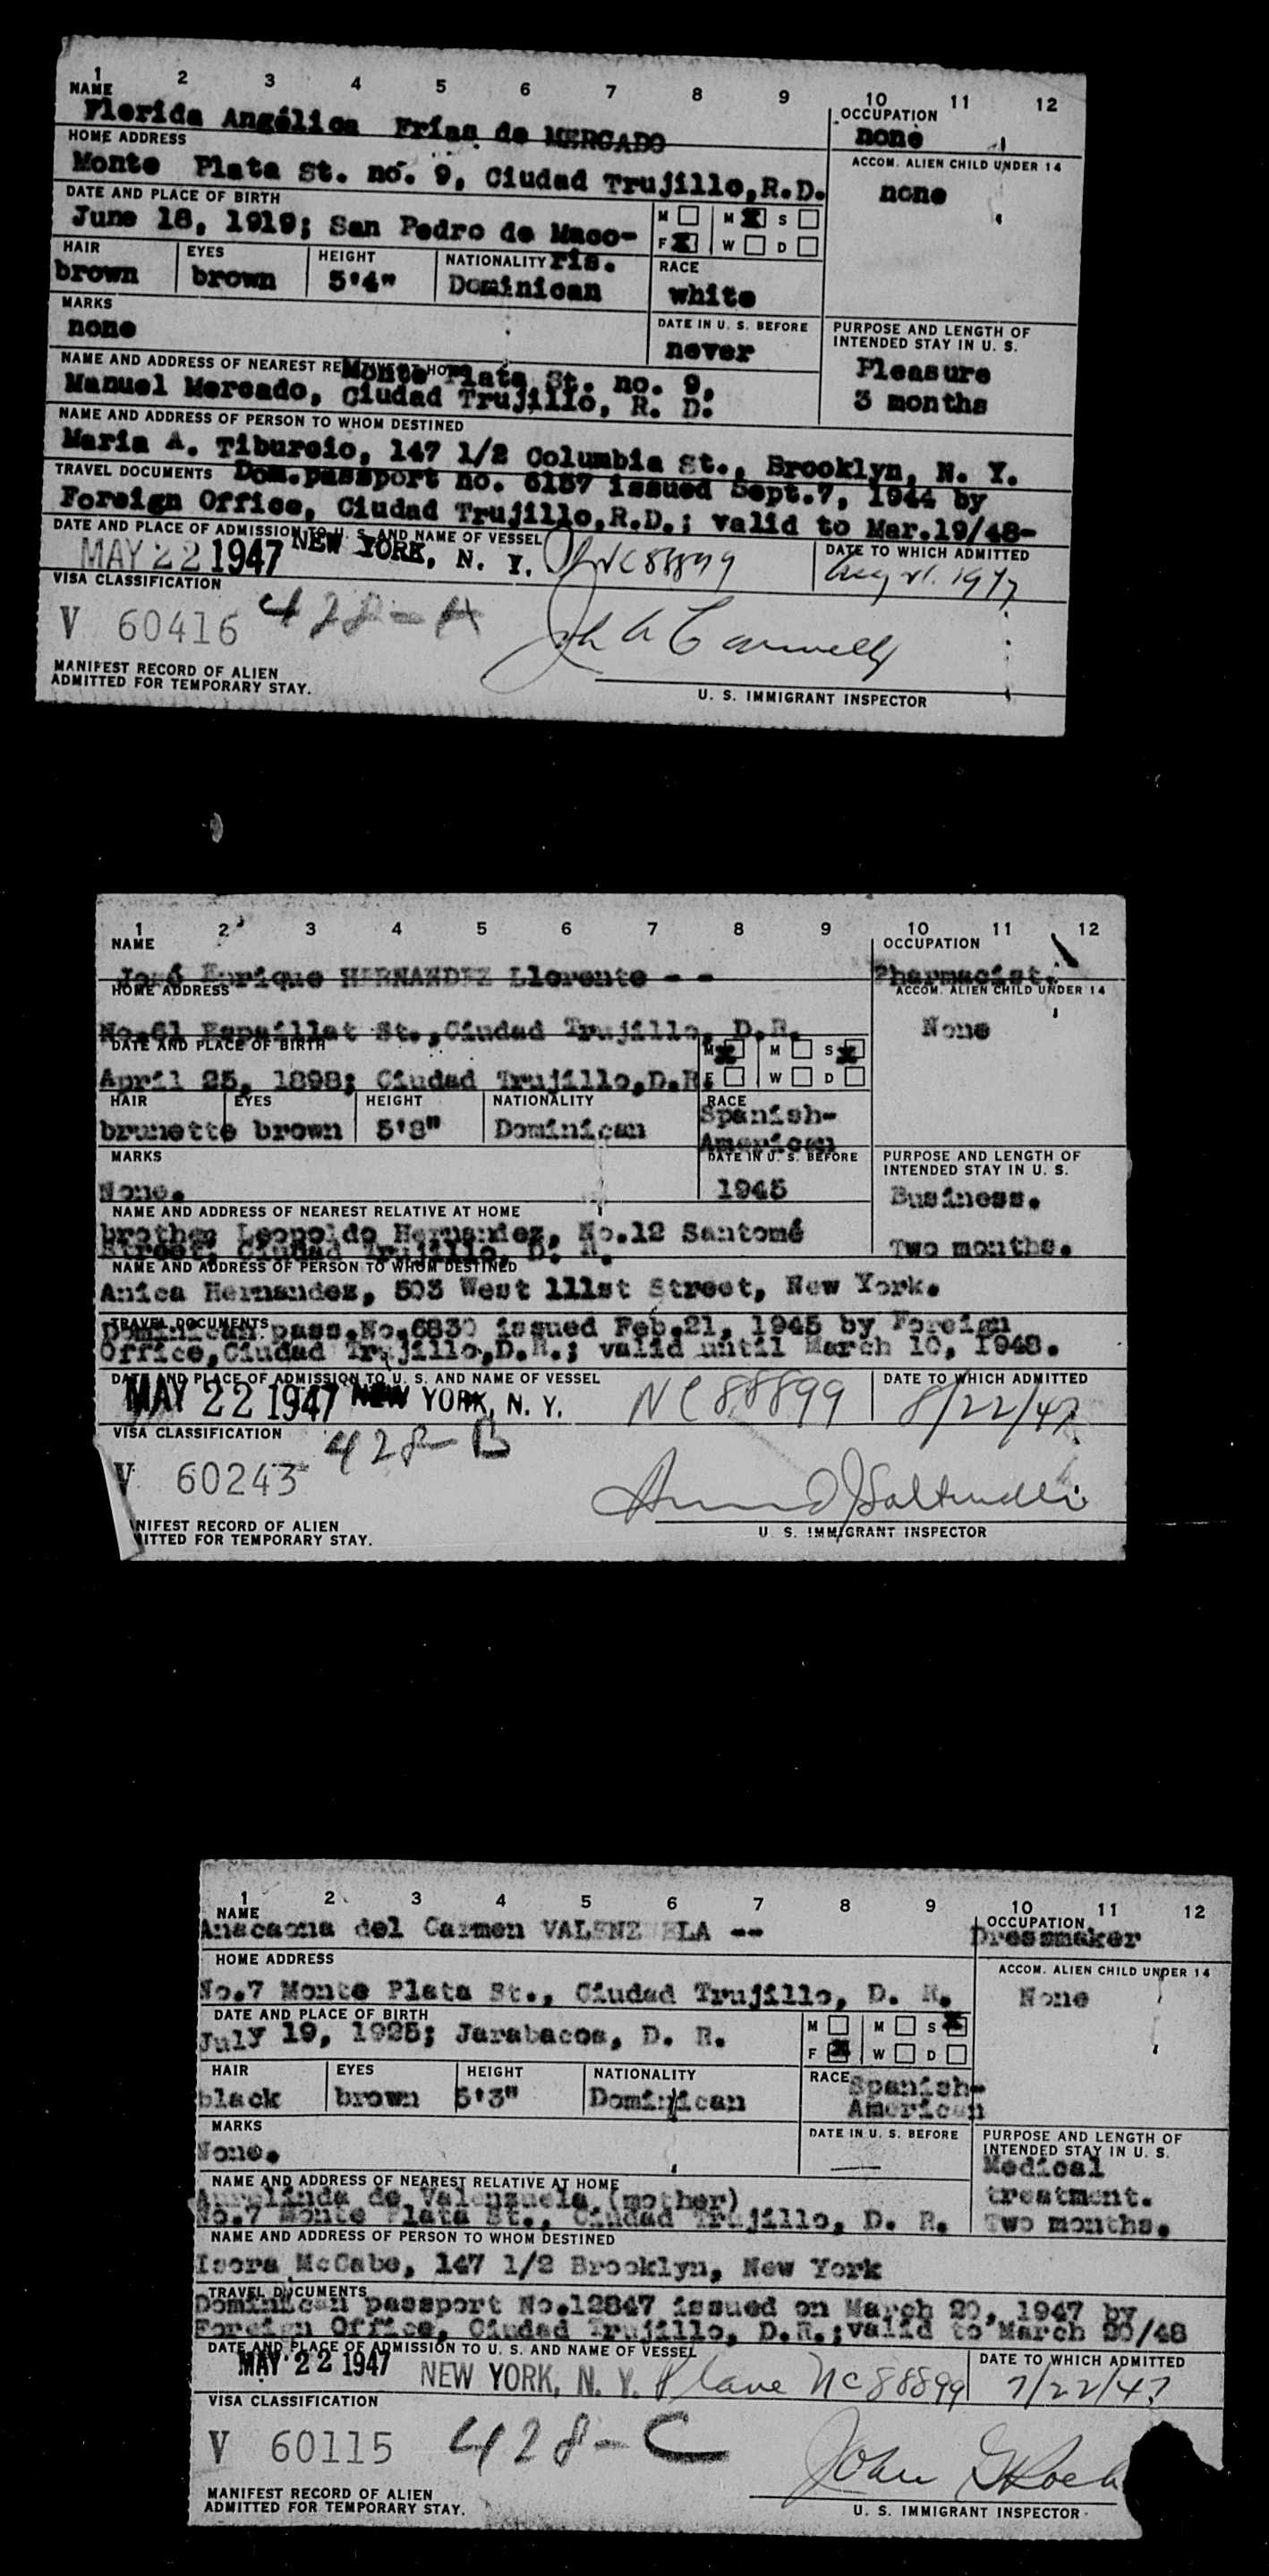 1 2 3 4 5 6 7 8 9 10 11 12
NAME OCCUPATION
Florida Angélica Frías de MERCADO none
HOME ADDRESS ACCOM. ALIEN CHILD UNDER 14
Monte Plata St. no. 9, Ciudad Trujillo,R.D. none
DATE AND PLACE OF BIRTH M M X S
June 18, 1919; San Pedro de Maco- F X W D
HAIR EYES HEIGHT NATIONALITY ris. RACE
brown brown 5'4" Dominican white
MARKS DATE IN U. S. BEFORE PURPOSE AND LENGTH OF
INTENDED STAY IN U. S.
none never Pleasure
3 months
NAME AND ADDRESS OF NEAREST RE Monte Plata St. no. 9,
Manuel Mercado, Ciudad Trujillo, R. D.
NAME AND ADDRESS OF PERSON TO WHOM DESTINED
Maria A. Tiburcio, 147 1/2 Columbia St., Brooklyn, N. Y.
TRAVEL DOCUMENTS Dom.passport no. 6187 issued Sept.7, 1944 by
Foreign Office, Ciudad Trujillo,R.D.; valid to Mar.19/48-
DATE AND PLACE OF ADMISSION TO U. S. AND NAME OF VESSEL DATE TO WHICH ADMITTED
MAY 22 1947 NEW YORK, N. Y. NC88899 Aug 21. 1947
VISA CLASSIFICATION
V 60416 428-A
MANIFEST RECORD OF ALIEN
ADMITTED FOR TEMPORARY STAY.
U. S. IMMIGRANT INSPECTOR
1 2 3 4 5 6 7 8 9 10 11 12
NAME OCCUPATION
José Enrique HERNANDEZ Llorente - - Pharmacist.
HOME ADDRESS ACCOM. ALIEN CHILD UNDER 14
No.61 Espaillat St.,Ciudad Trujillo, D.R. None
DATE AND PLACE OF BIRTH M X M S X
April 25, 1898; Ciudad Trujillo,D.R. F W D
HAIR EYES HEIGHT NATIONALITY RACE
brunette brown 5'8" Dominican Spanish-
American
MARKS DATE IN U. S. BEFORE PURPOSE AND LENGTH OF
INTENDED STAY IN U. S.
None. 1945 Business.
Two months.
NAME AND ADDRESS OF NEAREST RELATIVE AT HOME
brother Leopoldo Hernandez, No.12 Santomé
Street, Ciudad Trujillo, D. R.
NAME AND ADDRESS OF PERSON TO WHOM DESTINED
Anica Hernandez, 503 West 111st Street, New York.
TRAVEL DOCUMENTS
Dominican pass.No.6830 issued Feb.21, 1945 by Foreign
Office,Ciudad Trujillo,D.R.; valid until March 10, 1948.
DATE AND PLACE OF ADMISSION TO U. S. AND NAME OF VESSEL DATE TO WHICH ADMITTED
MAY 22 1947 NEW YORK, N. Y. NC88899 8/22/47
VISA CLASSIFICATION
V 60243 428-B
NIFEST RECORD OF ALIEN
ITTED FOR TEMPORARY STAY.
U. S. IMMIGRANT INSPECTOR
1 2 3 4 5 6 7 8 9 10 11 12
NAME OCCUPATION
Anacaona del Carmen VALENZUELA -- Dressmaker
HOME ADDRESS ACCOM. ALIEN CHILD UNDER 14
No.7 Monte Plata St., Ciudad Trujillo, D. R. None
DATE AND PLACE OF BIRTH M M S X
July 19, 1925; Jarabacoa, D. R. F X W D
HAIR EYES HEIGHT NATIONALITY RACE Spanish-
black brown 5'3" Dominican American
MARKS DATE IN U. S. BEFORE PURPOSE AND LENGTH OF
INTENDED STAY IN U. S.
None. — Medical
treatment.
Two months.
NAME AND ADDRESS OF NEAREST RELATIVE AT HOME
de Valenzuela (mother)
No.7 Monte Plata St., Ciudad Trujillo, D. R.
NAME AND ADDRESS OF PERSON TO WHOM DESTINED
Isora McCabe, 147 1/2 Brooklyn, New York
TRAVEL DOCUMENTS
Dominican passport No.12847 issued on March 20, 1947 by
Foreign Office, Ciudad Trujillo, D.R.;valid to March 20/48
DATE AND PLACE OF ADMISSION TO U. S. AND NAME OF VESSEL DATE TO WHICH ADMITTED
MAY 22 1947 NEW YORK, N. Y. Plane NC88899 7/22/47
VISA CLASSIFICATION
V 60115 428-C
John
MANIFEST RECORD OF ALIEN
ADMITTED FOR TEMPORARY STAY.
U. S. IMMIGRANT INSPECTOR